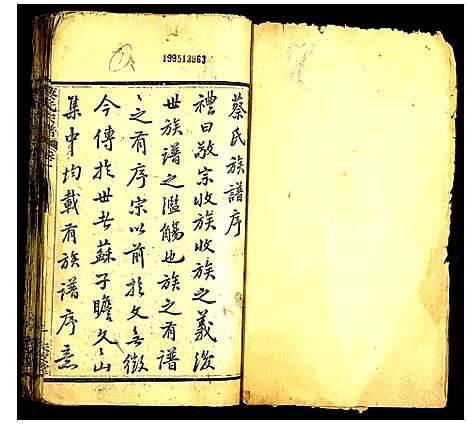 199513963
蔡氏族譜序
禮曰敬宗收族收族之義後
世族譜之濫觴也族之有譜
之有序宗以前於文無徵
今傳於世者蘇子瞻文山
集中均載有族譜序意
蔡氏宗譜